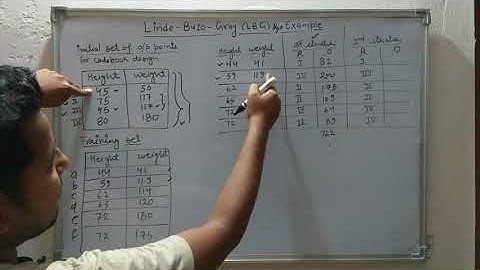 Linde-Buzo-Gray (LBG) Algo Example
Initial set of o/p points
for codebook design
Height Weight
I 45 50
II 75 117
III 45 117
IV 80 180
Training set
Height Weight
a 44 41
b 59 119
c 62 114
d 65 120
e 72 180
f 72 175
Height weight 1st iteration 2nd iteration
R D R D
44 41 I 82 I
59 119 III 200 III
62 II 178 II
65 II 109 II
72 IV 64 IV
72 IV 89 IV
722